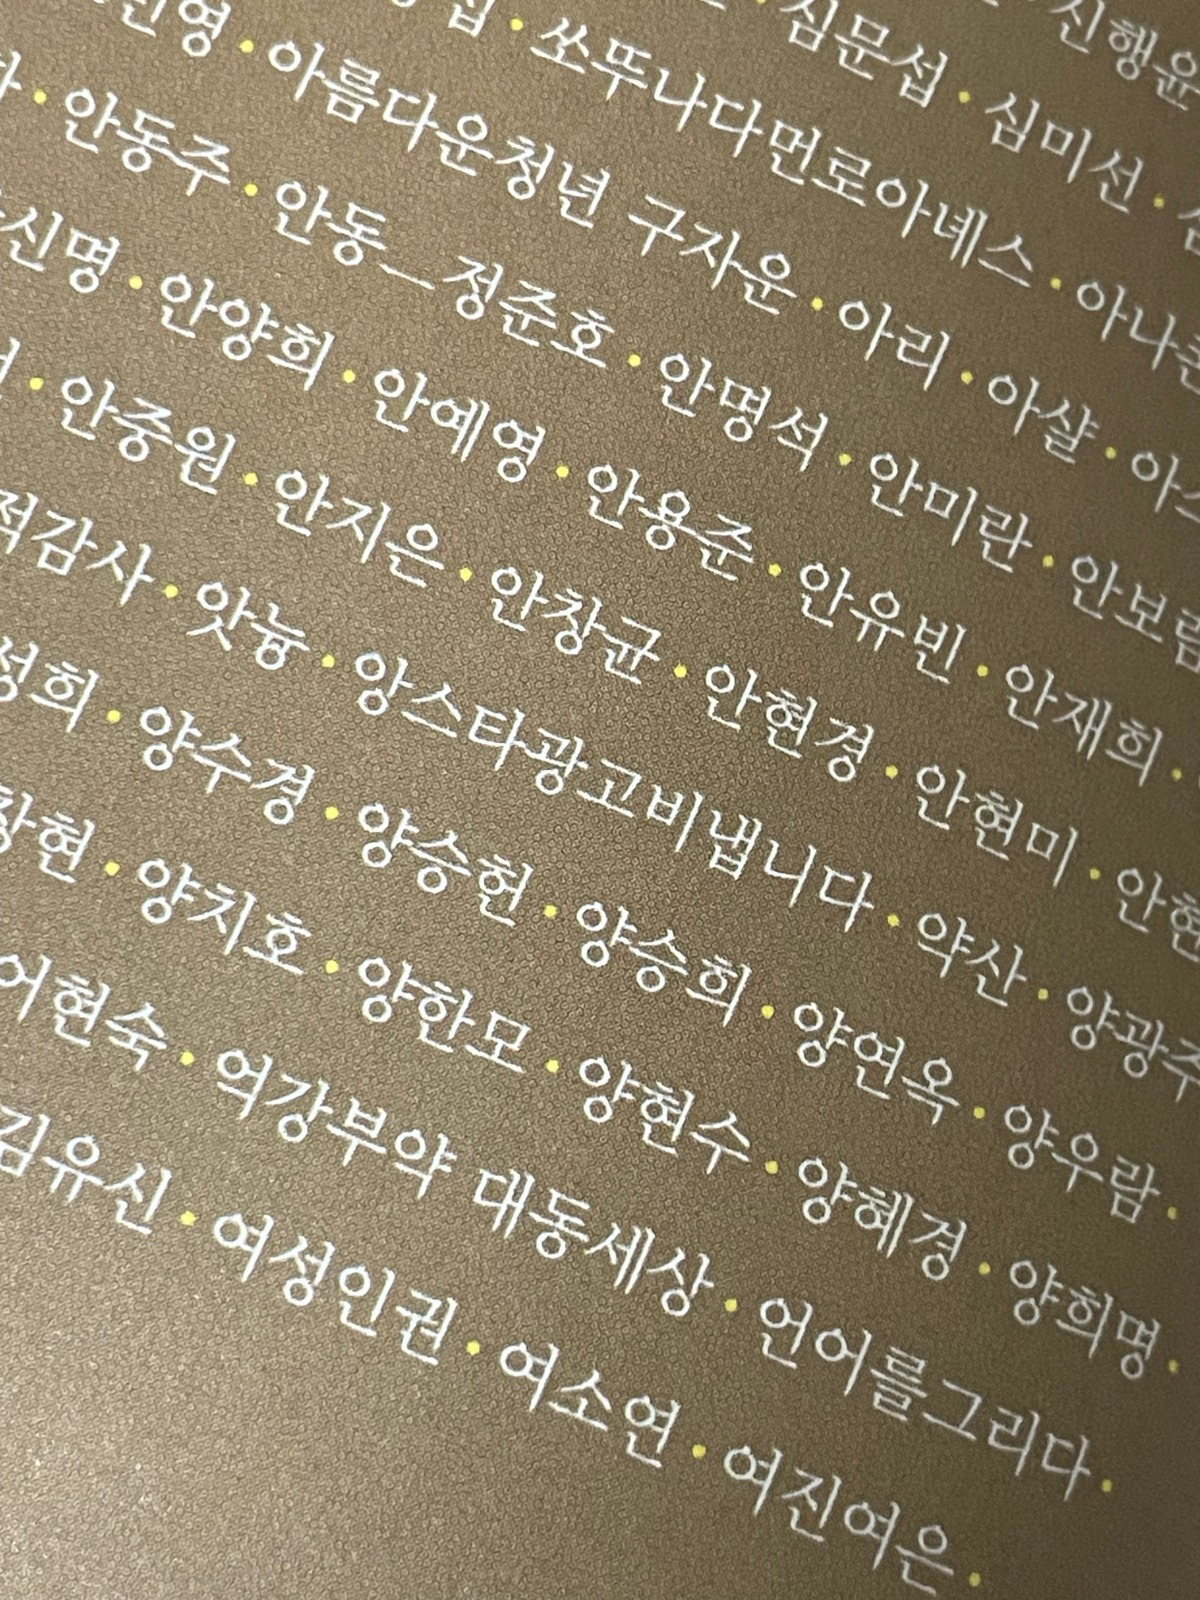 신행윤
심문섭 · 심미선 ·
쏘뚜나다먼로아녜스 ·
아름다운청년 구자운 · 아리 · 아샬 ·
안동주 · 안동_정준호 · 안명석 · 안미란 · 안보림
신명 · 안양희 · 안예영 · 안용준 · 안유빈 · 안재희 ·
안중원 · 안지은 · 안창균 · 안현경 · 안현미 · 안현
적감사 · 앗늉 · 앙스타광고비냅니다 · 약산 · 양광주
성희 · 양수경 · 양승헌 · 양승희 · 양연옥 · 양우람 ·
창현 · 양치호 · 양한모 · 양현수 · 양혜경 · 양희명 ·
어현숙 · 억강부약 대동세상 · 언어를그리다 ·
김유신 · 여성인권 · 여소연 · 여진여은 ·